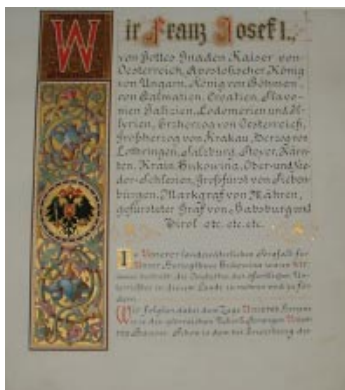 Wir Franz Josef I.,
von Gottes Gnaden Kaiser von
Oesterreich, Apostolischer König
von Ungarn, König von Böhmen,
von Dalmatien, Croatien, Slavo-
nien, Galizien, Lodomerien und Il-
lyrien, Erzherzog von Oesterreich,
Großherzog von Krakau, Herzog von
Lothringen, Salzburg, Steyer, Kärn-
ten, Krain, Bukowina, Ober- und Nie-
der-Schlesien, Großfürst von Sieben-
bürgen, Markgraf von Mähren,
gefürsteter Graf von Habsburg und
Tirol etc. etc. etc.
In Unserer landesväterlichen Sorgfalt für
Unser Herzogthum Bukowina waren Wir
bedacht, die Interessen des öffentlichen Un-
terrichtes in diesem Lande zu wahren und zu för-
dern.
Wir folgten dabei dem Zuge Unseres Herzens
wie in den Ueberlieferungen Unse-
res Hauses. Schon in dem der Erwerbung der